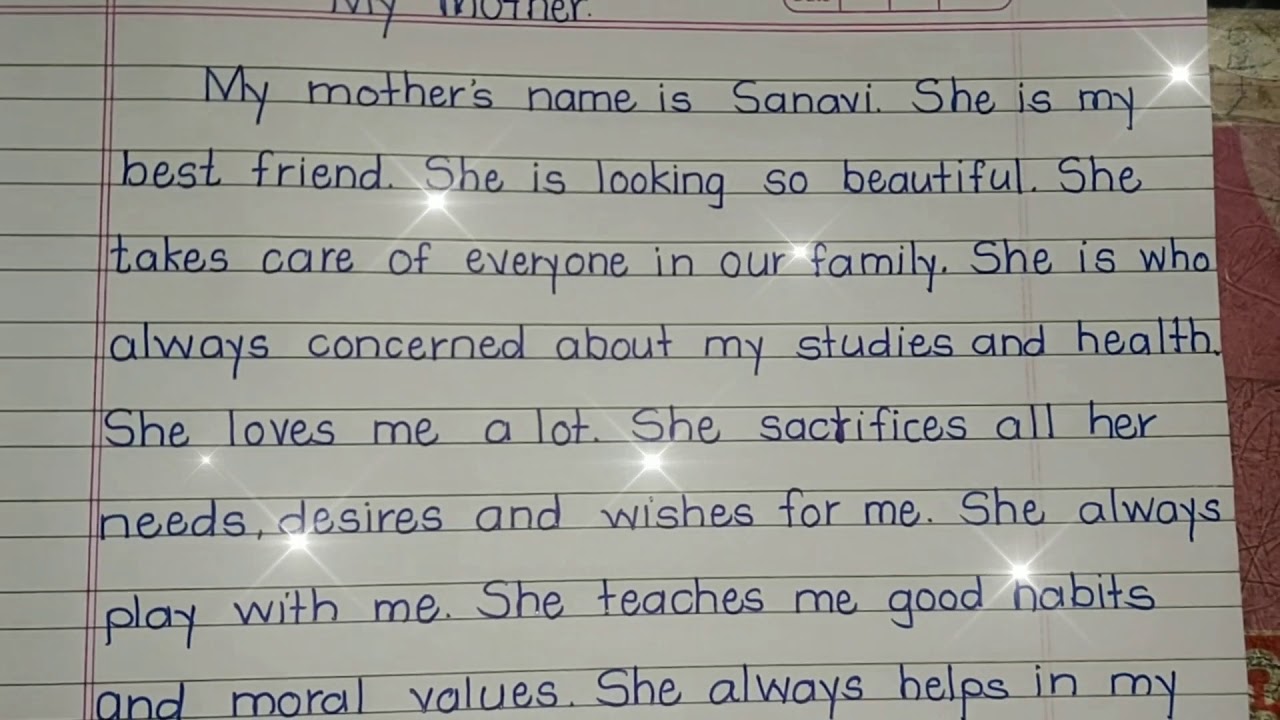 My Mother.
My mother's name is Sanavi. She is my
best friend. She is looking so beautiful. She
takes care of everyone in our family. She is who
always concerned about my studies and health.
She loves me a lot. She sacrifices all her
needs, desires and wishes for me. She always
play with me. She teaches me good habits
and moral values. She always helps in my